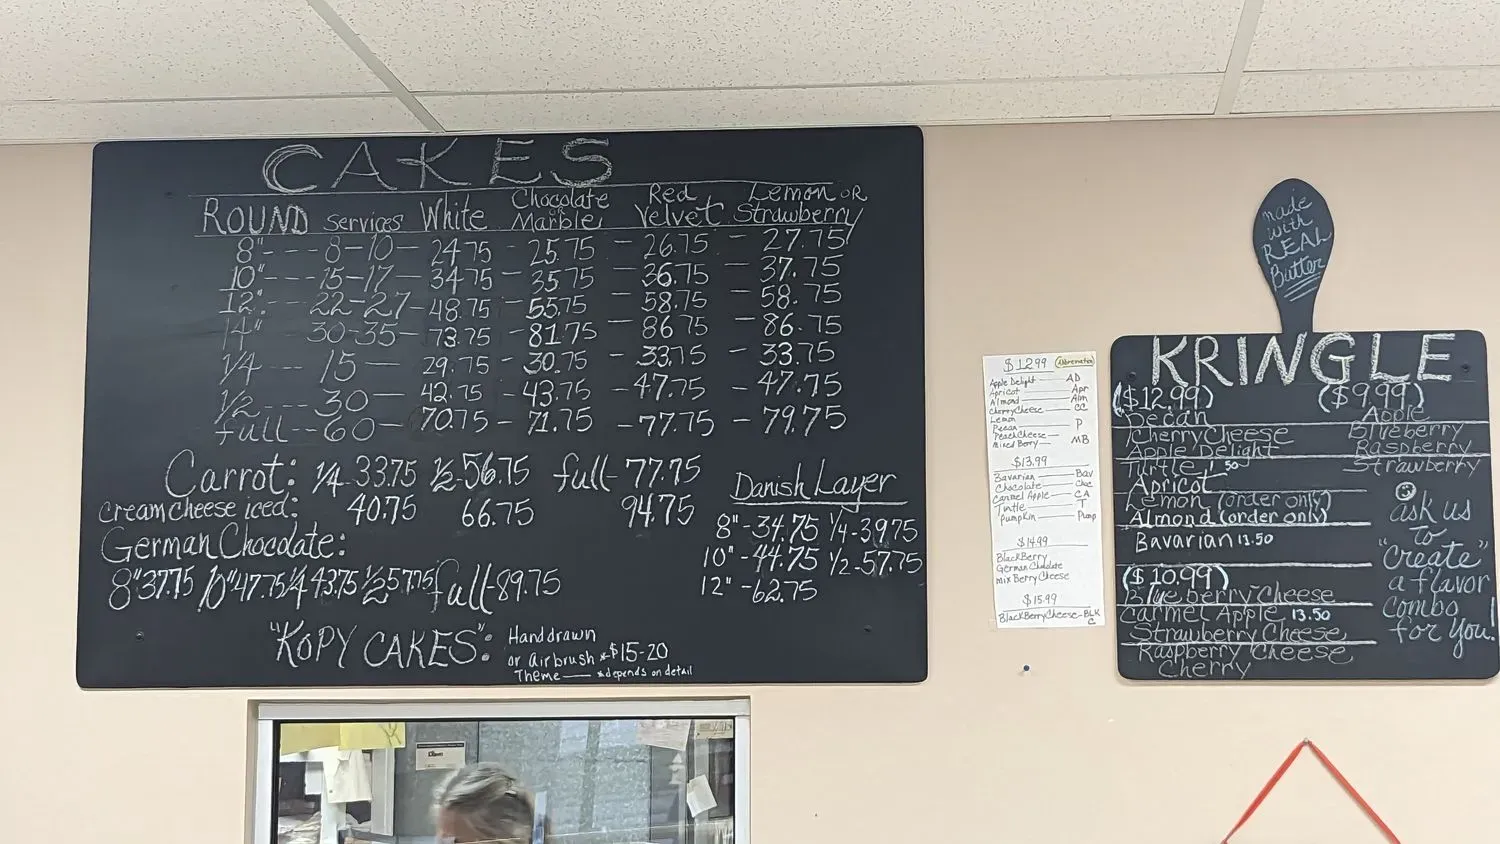 CAKES
ROUND Services White Chocolate or Marble Red Velvet Lemon OR Strawberry
8" --- 8-10 — 24.75 — 25.75 — 26.75 — 27.75
10" --- 15-17 — 34.75 — 35.75 — 36.75 — 37.75
12" --- 22-27 — 48.75 — 55.75 — 58.75 — 58.75
14" --- 30-35 — 73.75 — 81.75 — 86.75 — 86.75
1/4 --- 15 — 29.75 — 30.75 — 33.75 — 33.75
1/2 --- 30 — 42.75 — 43.75 — 47.75 — 47.75
full -- 60 — 70.75 — 71.75 — 77.75 — 79.75
Carrot: 1/4-33.75 1/2-56.75 full-77.75
cream cheese iced: 40.75 66.75 94.75
German Chocolate:
8" 37.75 10" 47.75 1/4 43.75 1/2 57.75 full-89.75
Danish Layer
8"-34.75 1/4-39.75
10"-44.75 1/2-57.75
12"-62.75
"KOPY CAKES": Hand drawn
or Airbrush *$15-20
Theme —— *depends on detail
$12.99
Apple Delight — AD
Apricot — Apr
Almond — Alm
CherryCheese — CC
Lemon
Pecan — P
PeachCheese —
Mixed Berry — MB
$13.99
Bavarian — Bav
Chocolate — Choc
Carmel Apple — CA
Turtle — T
Pumpkin — Pump
$14.99
BlackBerry
German Choclate
Mix Berry Cheese
$15.99
BlackBerryCheese-BLK
C
made
with
REAL
Butter
KRINGLE
($12.99)
Pecan
Cherry Cheese
Apple Delight
Turtle
Apricot
Lemon (order only)
Almond (order only)
Bavarian 13.50
($10.99)
Blueberry Cheese
Carmel Apple 13.50
Strawberry Cheese
Raspberry Cheese
Cherry
($9.99)
Apple
Blueberry
Raspberry
Strawberry
ask us
to
"create"
a flavor
combo
for you!